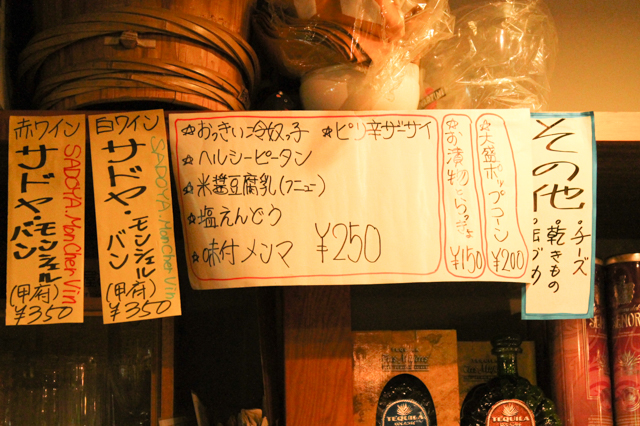 赤ワイン
サドヤ・モンシェル
バン
(甲府)
¥350
SADOYA.MonCher Vin
白ワイン
サドヤ・モンシェル
バン
(甲府)
¥350
SADOYA.MonCher Vin
☆おっきい冷奴っ子 ☆ピリ辛ザーサイ
☆ヘルシーピータン
☆米醤豆腐乳(フニュー)
☆塩えんどう
☆味付メンマ ¥250
☆お漬物とらっきょ
¥150
☆大盛ポップコーン
¥200
その他
・チーズ
・乾きもの
TEQUILA
TEQUILA